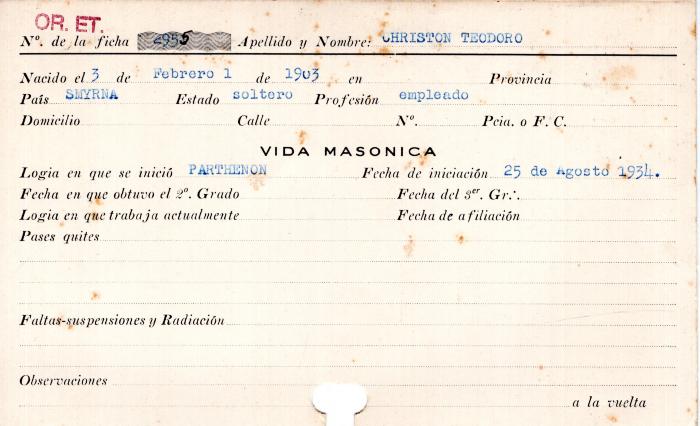 OR. ET.
Nº. de la ficha 2955 Apellido y Nombre: CHRISTON TEODORO
Nacido el 3 de Febrero 1 de 1903 en Provincia
País SMYRNA Estado soltero Profesión empleado
Domicilio Calle Nº. Pcia. o F. C.
VIDA MASONICA
Logia en que se inició PARTHENON Fecha de iniciación 25 de Agosto 1934.
Fecha en que obtuvo el 2º. Grado Fecha del 3er. Gr∴.
Logia en que trabaja actualmente Fecha de afiliación
Pases quites
Faltas-suspensiones y Radiación
Observaciones
a la vuelta